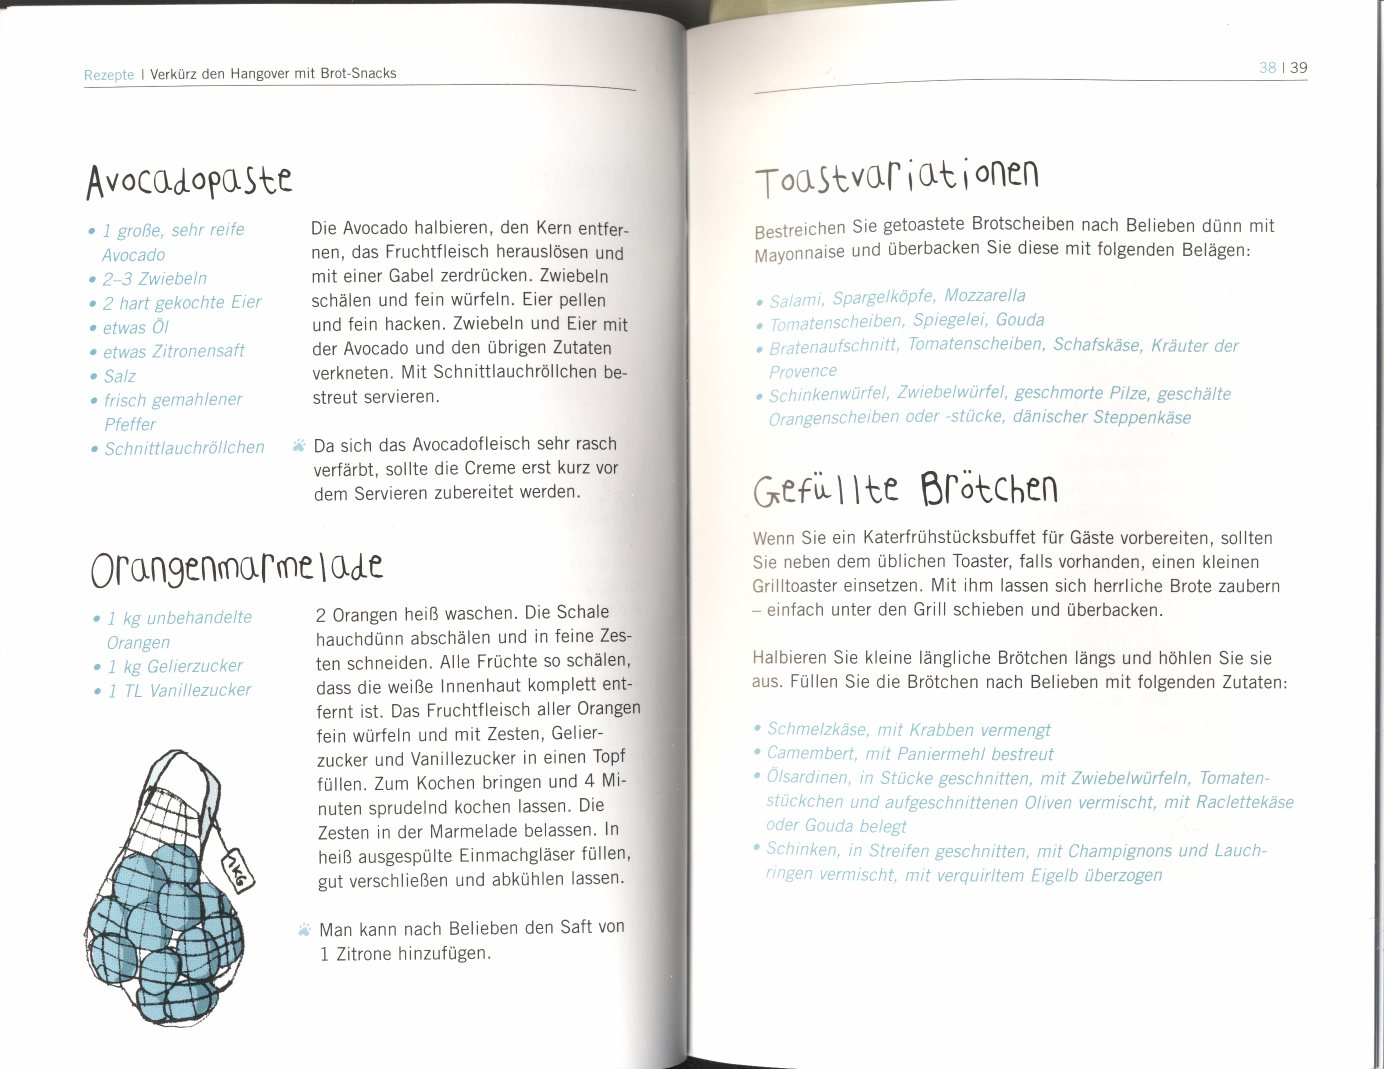 Rezepte | Verkürz den Hangover mit Brot-Snacks
Avocadopaste
• 1 große, sehr reife
Avocado
• 2–3 Zwiebeln
• 2 hart gekochte Eier
• etwas Öl
• etwas Zitronensaft
• Salz
• frisch gemahlener
Pfeffer
• Schnittlauchröllchen
Die Avocado halbieren, den Kern entfer-
nen, das Fruchtfleisch herauslösen und
mit einer Gabel zerdrücken. Zwiebeln
schälen und fein würfeln. Eier pellen
und fein hacken. Zwiebeln und Eier mit
der Avocado und den übrigen Zutaten
verkneten. Mit Schnittlauchröllchen be-
streut servieren.
Da sich das Avocadofleisch sehr rasch
verfärbt, sollte die Creme erst kurz vor
dem Servieren zubereitet werden.
Orangenmarmelade
• 1 kg unbehandelte
Orangen
• 1 kg Gelierzucker
• 1 TL Vanillezucker
1KG
2 Orangen heiß waschen. Die Schale
hauchdünn abschälen und in feine Zes-
ten schneiden. Alle Früchte so schälen,
dass die weiße Innenhaut komplett ent-
fernt ist. Das Fruchtfleisch aller Orangen
fein würfeln und mit Zesten, Gelier-
zucker und Vanillezucker in einen Topf
füllen. Zum Kochen bringen und 4 Mi-
nuten sprudelnd kochen lassen. Die
Zesten in der Marmelade belassen. In
heiß ausgespülte Einmachgläser füllen,
gut verschließen und abkühlen lassen.
Man kann nach Belieben den Saft von
1 Zitrone hinzufügen.
38 | 39
Toastvariationen
Bestreichen Sie getoastete Brotscheiben nach Belieben dünn mit
Mayonnaise und überbacken Sie diese mit folgenden Belägen:
• Salami, Spargelköpfe, Mozzarella
• Tomatenscheiben, Spiegelei, Gouda
• Bratenaufschnitt, Tomatenscheiben, Schafskäse, Kräuter der
Provence
• Schinkenwürfel, Zwiebelwürfel, geschmorte Pilze, geschälte
Orangenscheiben oder -stücke, dänischer Steppenkäse
Gefüllte Brötchen
Wenn Sie ein Katerfrühstücksbuffet für Gäste vorbereiten, sollten
Sie neben dem üblichen Toaster, falls vorhanden, einen kleinen
Grilltoaster einsetzen. Mit ihm lassen sich herrliche Brote zaubern
– einfach unter den Grill schieben und überbacken.
Halbieren Sie kleine längliche Brötchen längs und höhlen Sie sie
aus. Füllen Sie die Brötchen nach Belieben mit folgenden Zutaten:
• Schmelzkäse, mit Krabben vermengt
• Camembert, mit Paniermehl bestreut
• Ölsardinen, in Stücke geschnitten, mit Zwiebelwürfeln, Tomaten-
stückchen und aufgeschnittenen Oliven vermischt, mit Raclettekäse
oder Gouda belegt
• Schinken, in Streifen geschnitten, mit Champignons und Lauch-
ringen vermischt, mit verquirltem Eigelb überzogen